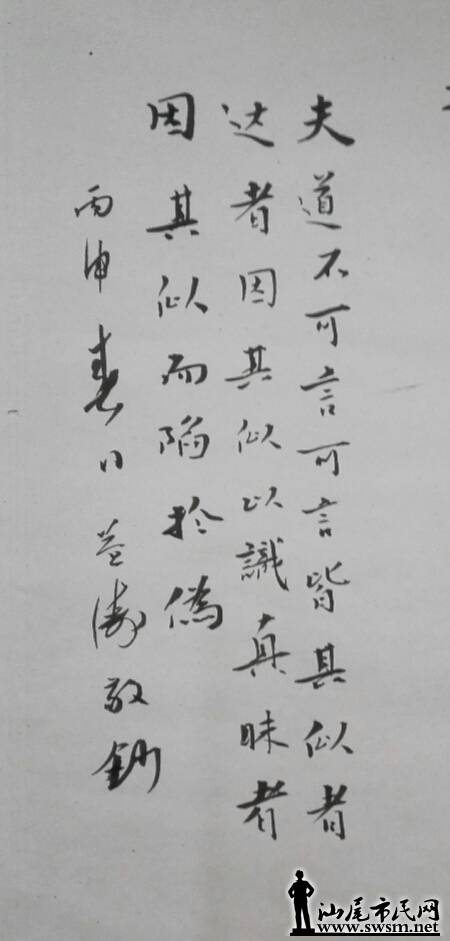 夫道不可言可言皆其似者
达者因其似以識真昧者
因其似而陷於偽
丙申春日益涛敬鈔
汕尾市民网
www.swsm.net